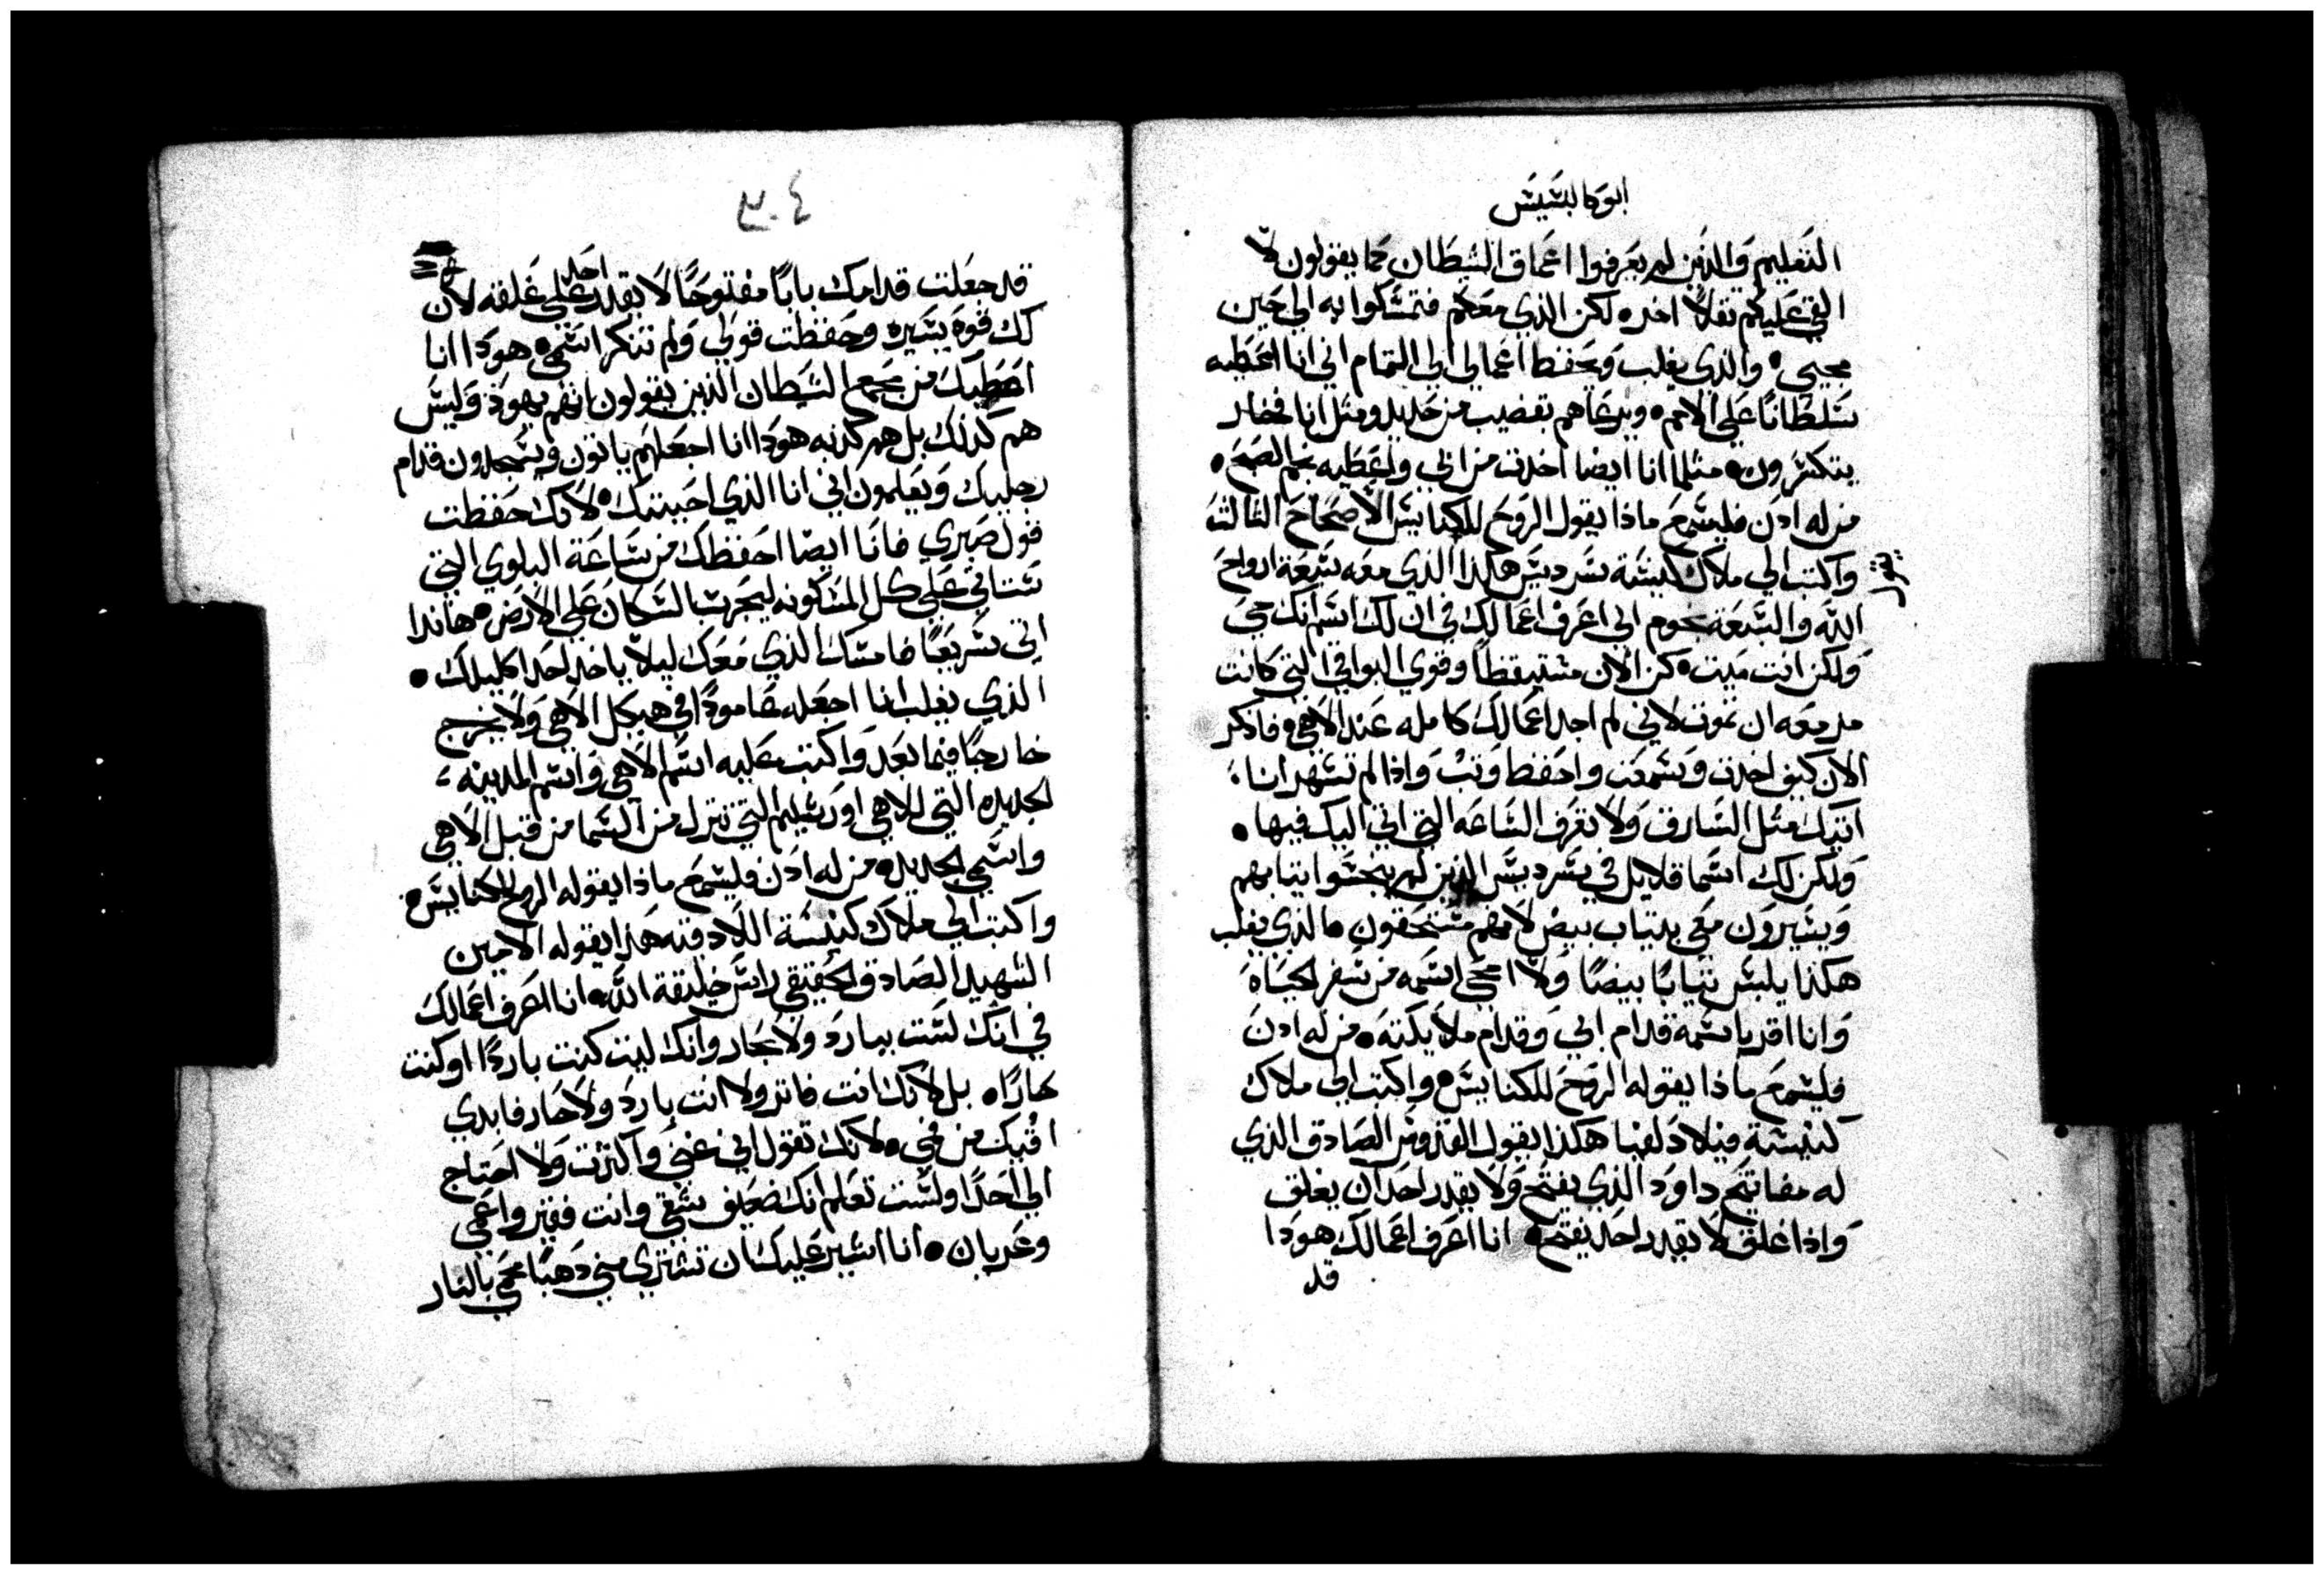 ابوكالبسيس
التعليم والذين لم يعرفوا اعماق الشيطان كما يقولون لا
القي عليكم تقلاً اخر ه لكن الذي معكم فتمسكوا به الي حين
مجيي ه والذي يغلب ويحفظ اعمالي الي التمام اني انا اعطيه
سلطاناً علي الامم ه ويرعاهم بقضيب من حديد ومثل انا فخار
يتكسرون ه مثلما انا ايضا اخدت من ابي واعطيه نجم الصبح ه
من له ادن فليسمع ماذا يقول الروح للكنايس الاصحاح الثالث
واكتب الي ملاك كنيسة سرديس هكذا الذي معه سبعة ارواح
الله والسبعة نجوم اني اعرف اعمالك في ان لك اسم انك حي
ولكن انت ميت ه كن الان مستيقظاً وقوي البواقي التي كانت
مزمعه ان تموت لاني لم اجد اعمالك كامله عند الاهي ه فادكر
الان كيف اخدت وسمعت واحفظ وتب واذا لم تسهر انا
اتيك مثل السارق ولا تعرف الساعه التي اتي اليك فيها ه
ولكن لك اسما قلايل في سرديس الذين لم ينجسوا ثيابهم
ويسيرون معي بتياب بيض لانهم مستحقون ه الذي يغلب
هكذا يلبس ثياباً بيضاً ولا امحي اسمه من سفر الحياه
وانا اقر باسمه قدام ابي وقدام ملايكته ه من له ادن
فليسمع ماذا يقوله الروح للكنايس ه واكتب الي ملاك
كنيسة فيلادلفيا هكذا يقول القدوس الصادق الذي
له مفاتيح داود الذي يفتح ولا يقدر احد ان يغلق
واذا غلق لا يقدر احد يفتح ه انا اعرف اعمالك هودا
قد
٣٠٤
قد جعلت قدامك باباً مفتوحاً لا يقدر احد علي غلقه لان
لك قوه يسيره وحفظت قولي ولم تنكر اسمي ه هودا انا
اعطيك من مجمع الشيطان الذين يقولون انهم يهود وليس
هم كذلك بل هم كدبه هودا انا اجعلهم ياتون ويسجدون قدام
رجليك ويعلمون اني انا الذي احببتك ه لانك حفظت
قول صبري فانا ايضا احفظك من ساعة البلوي التي
ستاتي علي كل المسكونه ليجرب السكان علي الارض ه هاندا
اتي سريعاً فامسك الذي معك ليلا ياخد احد اكليلك ه
الذي يغلب انا اجعله عاموداً في هيكل الاهي ولا يخرج
خارجاً فيما بعد واكتب عليه اسم الاهي واسم المدينه
الجديده التي للاهي اورشليم التي تنزل من السما من قبل الاهي
واسمي الجديد ه من له ادن فليسمع ماذا يقوله الروح للكنايس ه
واكتب الي ملاك كنيسة اللادقيه هذا يقوله الامين
الشهيد الصادق الحقيقي راس خليقة الله ه انا اعرف اعمالك
في انك لست ببارد ولا بحار وانك ليت كنت بارداً او كنت
حاراً ه بل لانك انت فاتر ولا انت بارد ولا حار فابدي
اقيك من فمي ه لانك تقول اني غني واكثرت ولا احتاج
الي احداً ولست تعلم انك ضعيف شقي وانت فقير واعمي
وعريان ه انا اشير عليك ان تشتري مني دهباً محمي بالنار